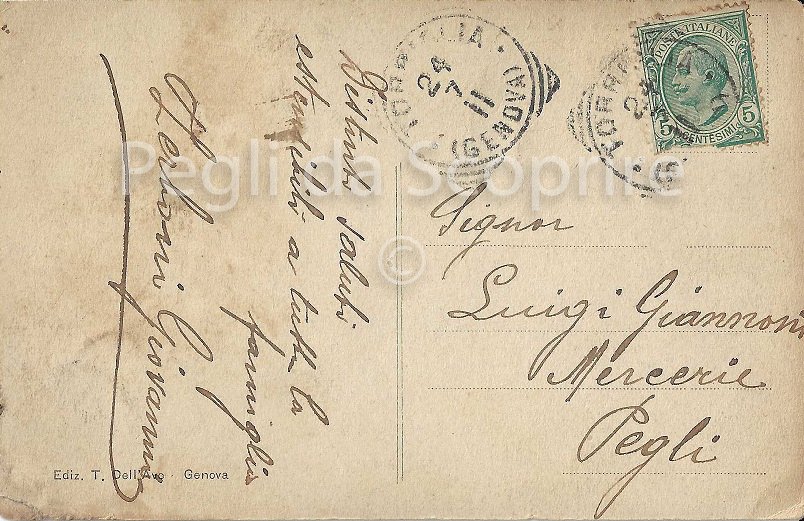 Distinti saluti
estendibili a tutta la
famiglia
Giovanni
TORRIGLIA
24
7
11
(GENOVA)
POSTE ITALIANE
5 CENTESIMI 5
Signor
Luigi Giannoni
Mercerie
Pegli
Ediz. T. Dell'Avo - Genova
Pegli da Scoprire
©